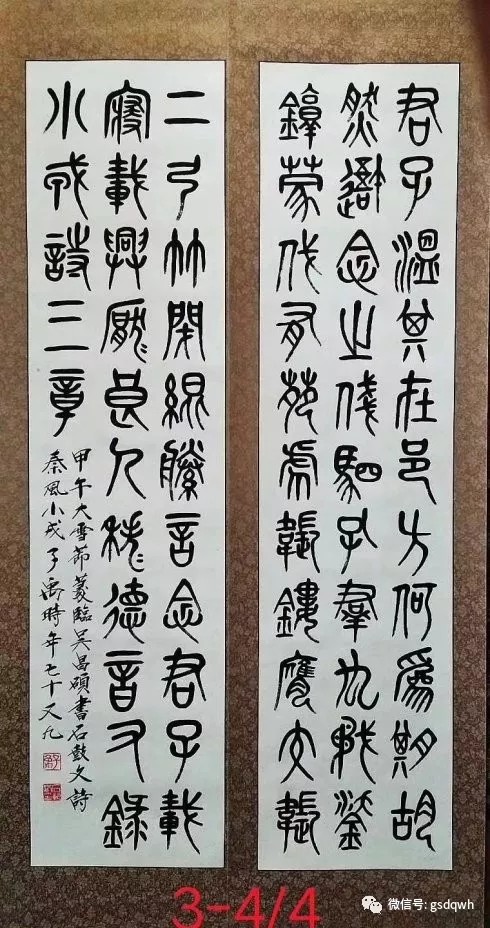 君子溫其在邑方何為期胡
然念之俴駟孔羣厹矛鋈
錞蒙伐有苑虎韔鏤膺交韔
二弓竹閉緄縢言念君子載
寢載興厭〻良人秩〻德音又錄
小戎詩三章
甲午大雪節篆臨吳昌碩書石鼓文詩
秦風小戎 子禹時年七十又九
3-4/4
微信号: gsdqwh